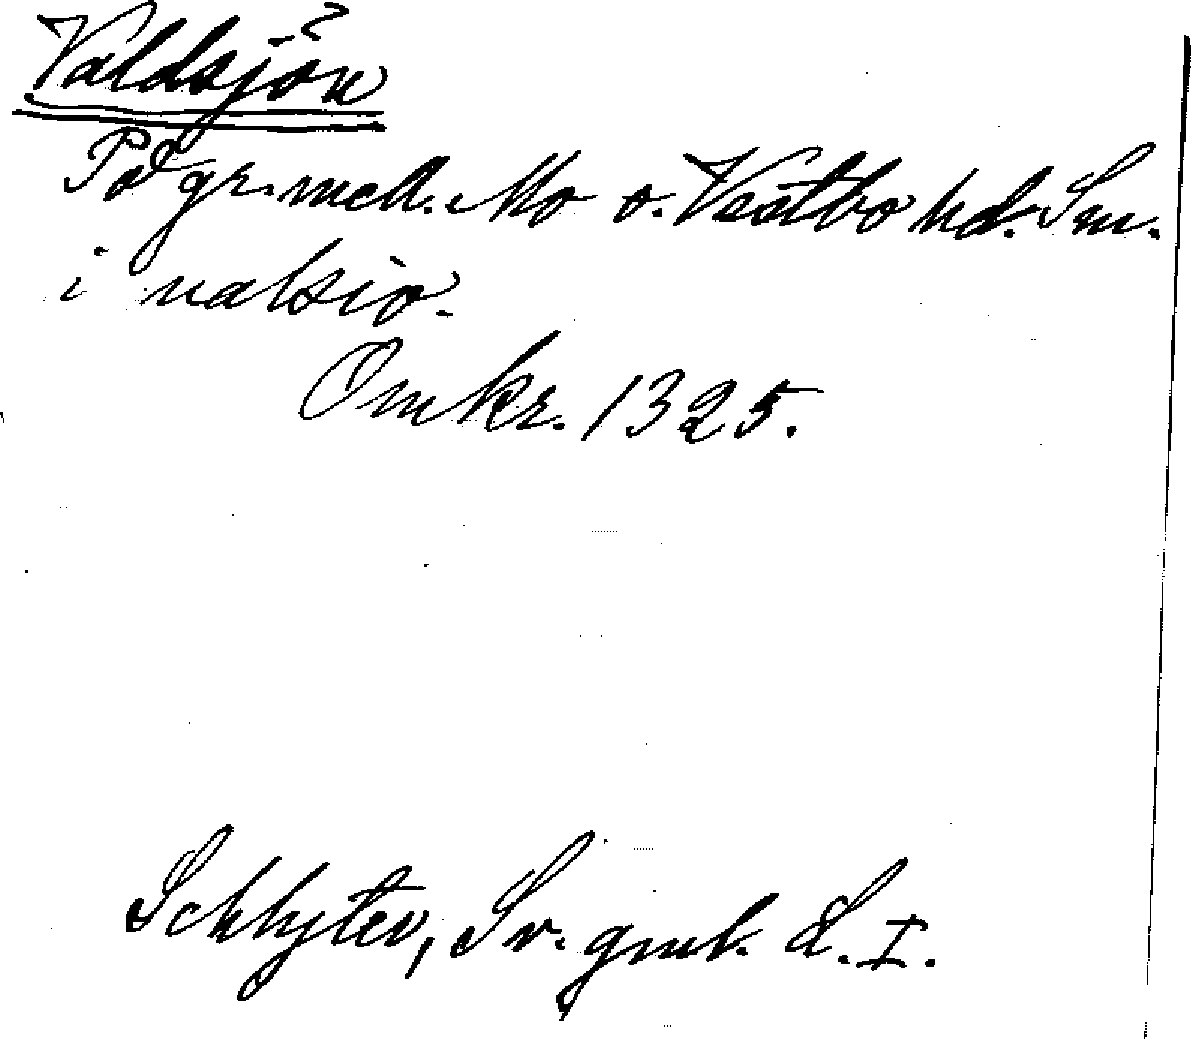 Valdsjön
På gr. mell. Mo o. Västbo hd. Sm.
i valsio.
Omkr. 1325.
Schlyter, Sv. gml. L. I.